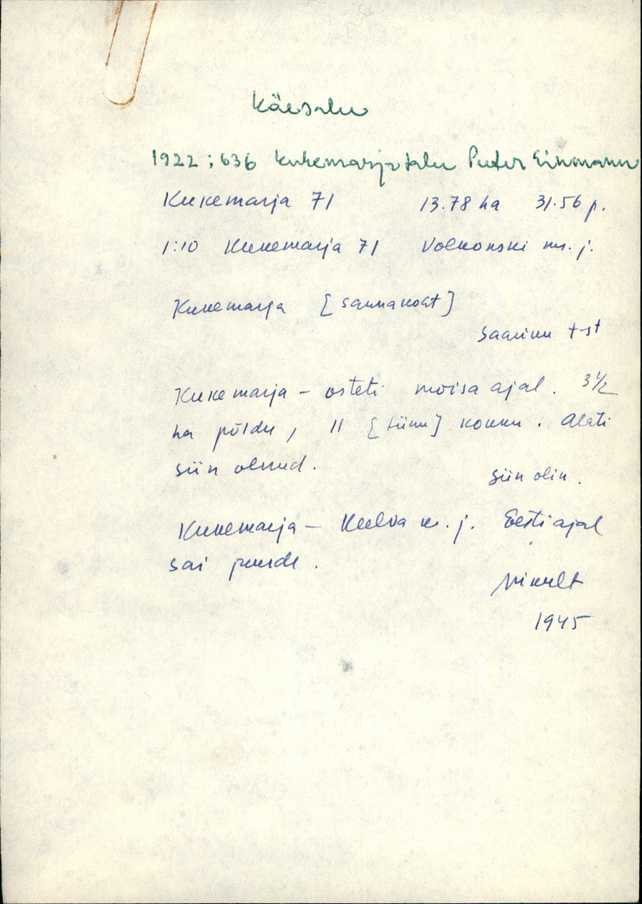 Käesalu
1922; 636 Kukemarja talu Peeter Einmann
Kukemarja 71 13.78 ha 31.56 p.
1:10 Kukemarja 71 Volkonski m. j.
Kukemarja [saunakoht]
Saarinu t-st
Kukemarja – osteti mõisa ajal. 3 1/2
ha põldu, 11 [tiinu] kokku. Alati
siin olnud.
Siin olin.
Kukemarja – Keelva m. j. Eesti ajal
sai juurde.
1945